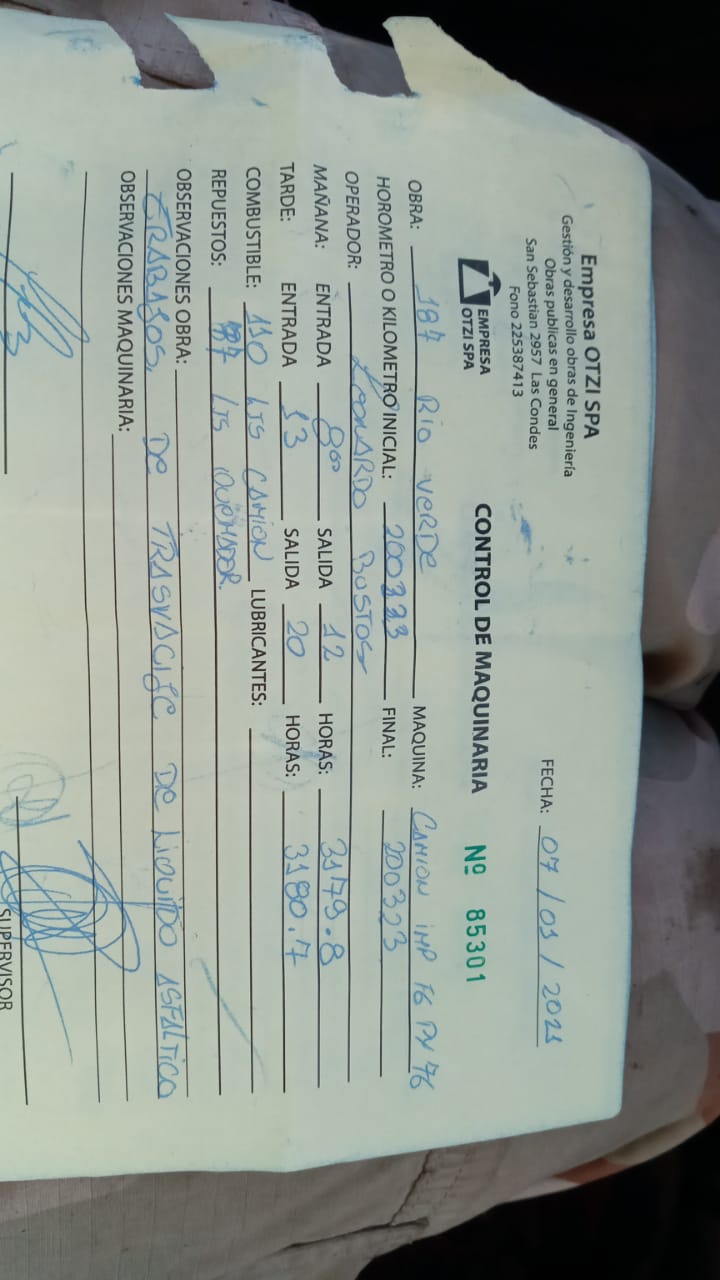 Empresa OTZI SPA
Gestión y desarrollo obras de Ingeniería
Obras publicas en general
San Sebastian 2957 Las Condes
Fono 225387413
FECHA: 07 / 01 / 2021
EMPRESA
OTZI SPA
CONTROL DE MAQUINARIA
Nº 85301
OBRA: 187 RIO VERDE MAQUINA: CAMION IMP FG PY 76
HOROMETRO O KILOMETRO INICIAL: 200323 FINAL: 200323
OPERADOR: LEONARDO BUSTOS
MAÑANA: ENTRADA 8⁰⁰ SALIDA 12 HORAS: 3179.8
TARDE: ENTRADA 13 SALIDA 20 HORAS: 3180.7
COMBUSTIBLE: 110 LTS CAMION LUBRICANTES:
REPUESTOS: LTS QUEMADOR.
OBSERVACIONES OBRA:
TRABAJOS. DE TRASVACIJE DE LIQUIDO ASFALTICO
OBSERVACIONES MAQUINARIA:
SUPERVISOR